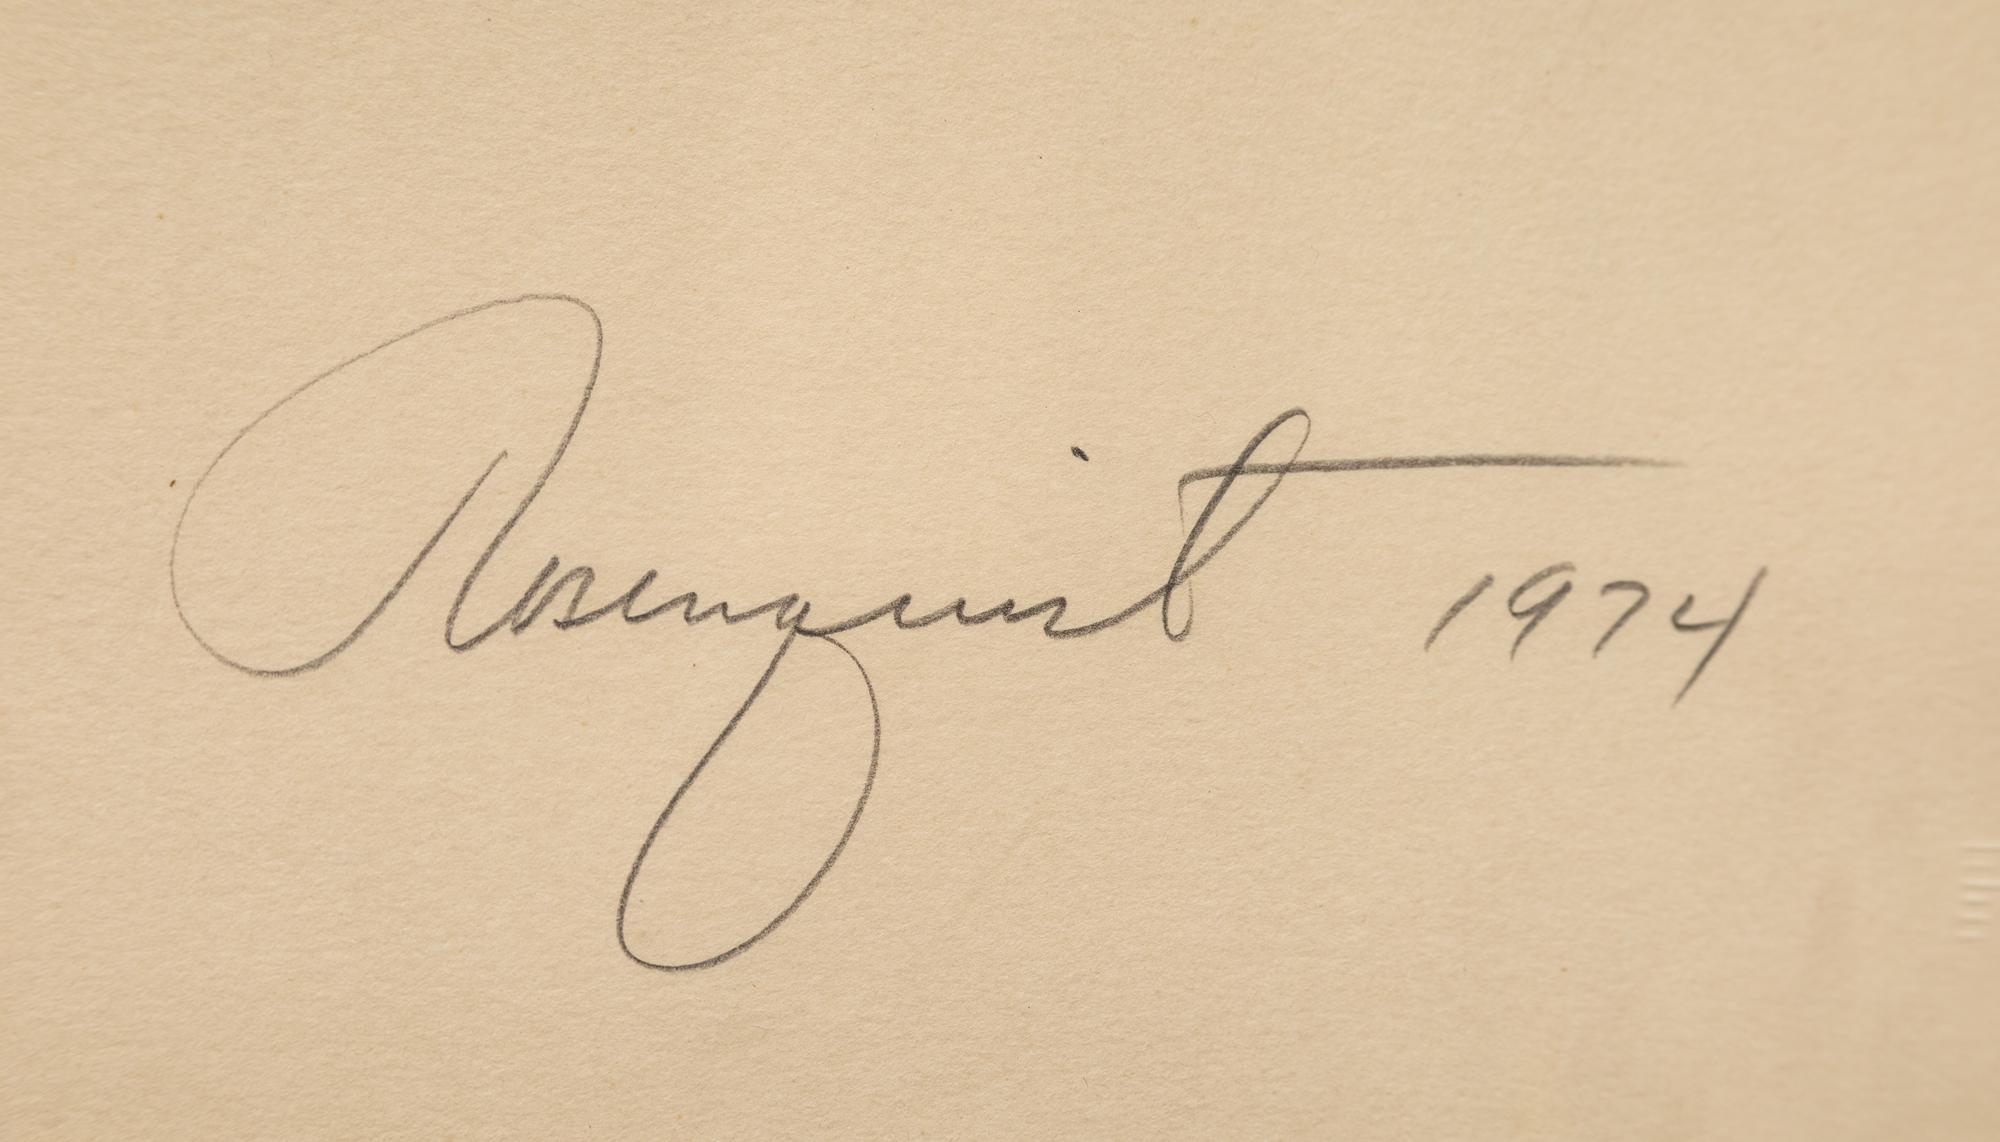 Rosenquist 1974